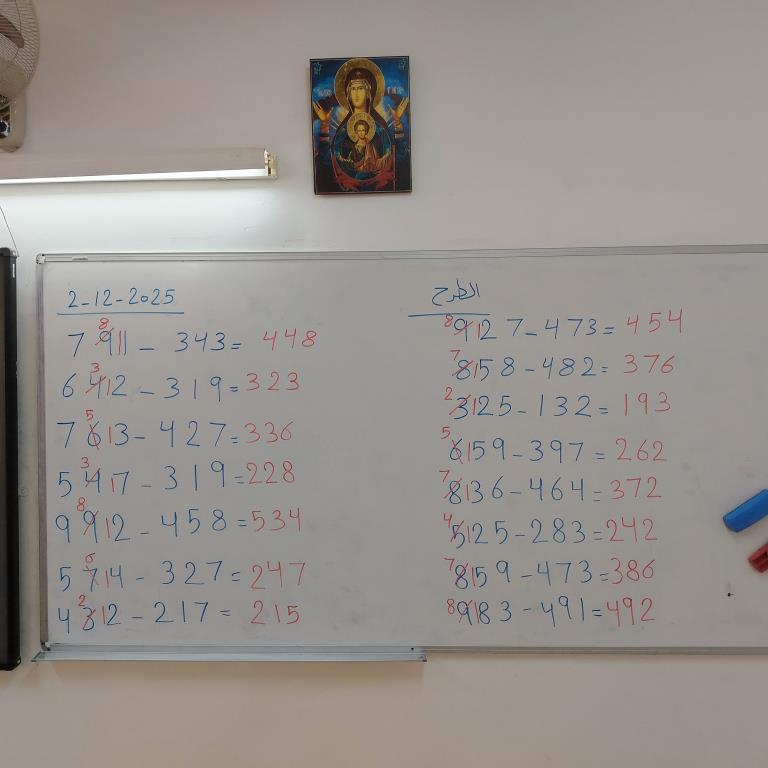 2-12-2025
8
7 9 11 - 343 = 448
3
6 4 12 - 319 = 323
5
7 6 13 - 427 = 336
3
5 4 17 - 319 = 228
8
9 9 12 - 458 = 534
6
5 7 14 - 327 = 247
2
4 3 12 - 217 = 215
الطرح
8
9 12 7 - 473 = 454
7
8 15 8 - 482 = 376
2
3 12 5 - 132 = 193
5
6 15 9 - 397 = 262
7
8 13 6 - 464 = 372
4
5 12 5 - 283 = 242
7
8 15 9 - 473 = 386
8
9 18 3 - 491 = 492